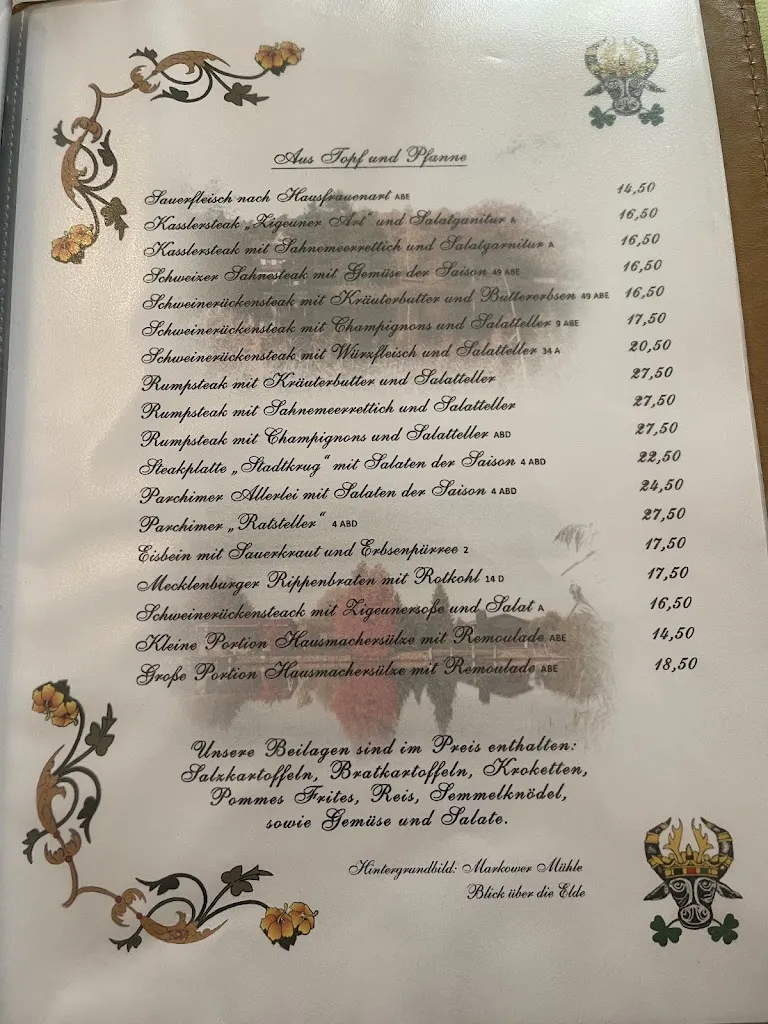 Aus Topf und Pfanne
Sauerfleisch nach Hausfrauenart ABE 14,50
Kasslersteak „Zigeuner Art“ und Salatganitur A 16,50
Kasslersteak mit Sahnemeerrettich und Salatgarnitur A 16,50
Schweizer Sahnesteak mit Gemüse der Saison 49 ABE 16,50
Schweinerückensteak mit Kräuterbutter und Buttererbsen 49 ABE 16,50
Schweinerückensteak mit Champignons und Salatteller 9 ABE 17,50
Schweinerückensteak mit Würzfleisch und Salatteller 34 A 20,50
Rumpsteak mit Kräuterbutter und Salatteller 27,50
Rumpsteak mit Sahnemeerrettich und Salatteller 27,50
Rumpsteak mit Champignons und Salatteller ABD 27,50
Steakplatte „Stadtkrug“ mit Salaten der Saison 4 ABD 22,50
Parchimer Allerlei mit Salaten der Saison 4 ABD 24,50
Parchimer „Ratsteller“ 4 ABD 27,50
Eisbein mit Sauerkraut und Erbsenpürree 2 17,50
Mecklenburger Rippenbraten mit Rotkohl 14 D 17,50
Schweinerückensteack mit Zigeunersoße und Salat A 16,50
Kleine Portion Hausmachersülze mit Remoulade ABE 14,50
Große Portion Hausmachersülze mit Remoulade ABE 18,50
Unsere Beilagen sind im Preis enthalten:
Salzkartoffeln, Bratkartoffeln, Kroketten,
Pommes Frites, Reis, Semmelknödel,
sowie Gemüse und Salate.
Hintergrundbild: Markower Mühle
Blick über die Elde